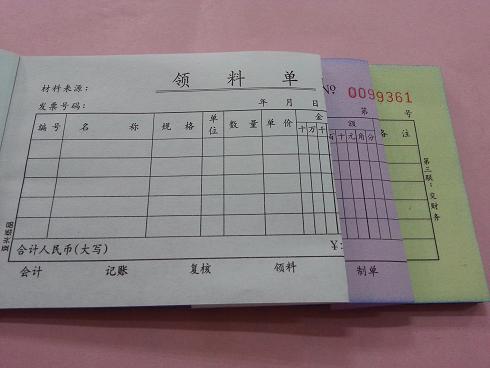 领料单
№ 0099361
材料来源:
发票号码:
年 月 日
第 号
编号 名称 规格 单位 数量 单价 金 额 备注
十 万 千 百 十 元 角 分
合计人民币(大写) ¥:
会计 记账 复核 领料 制单
第三联:交财务